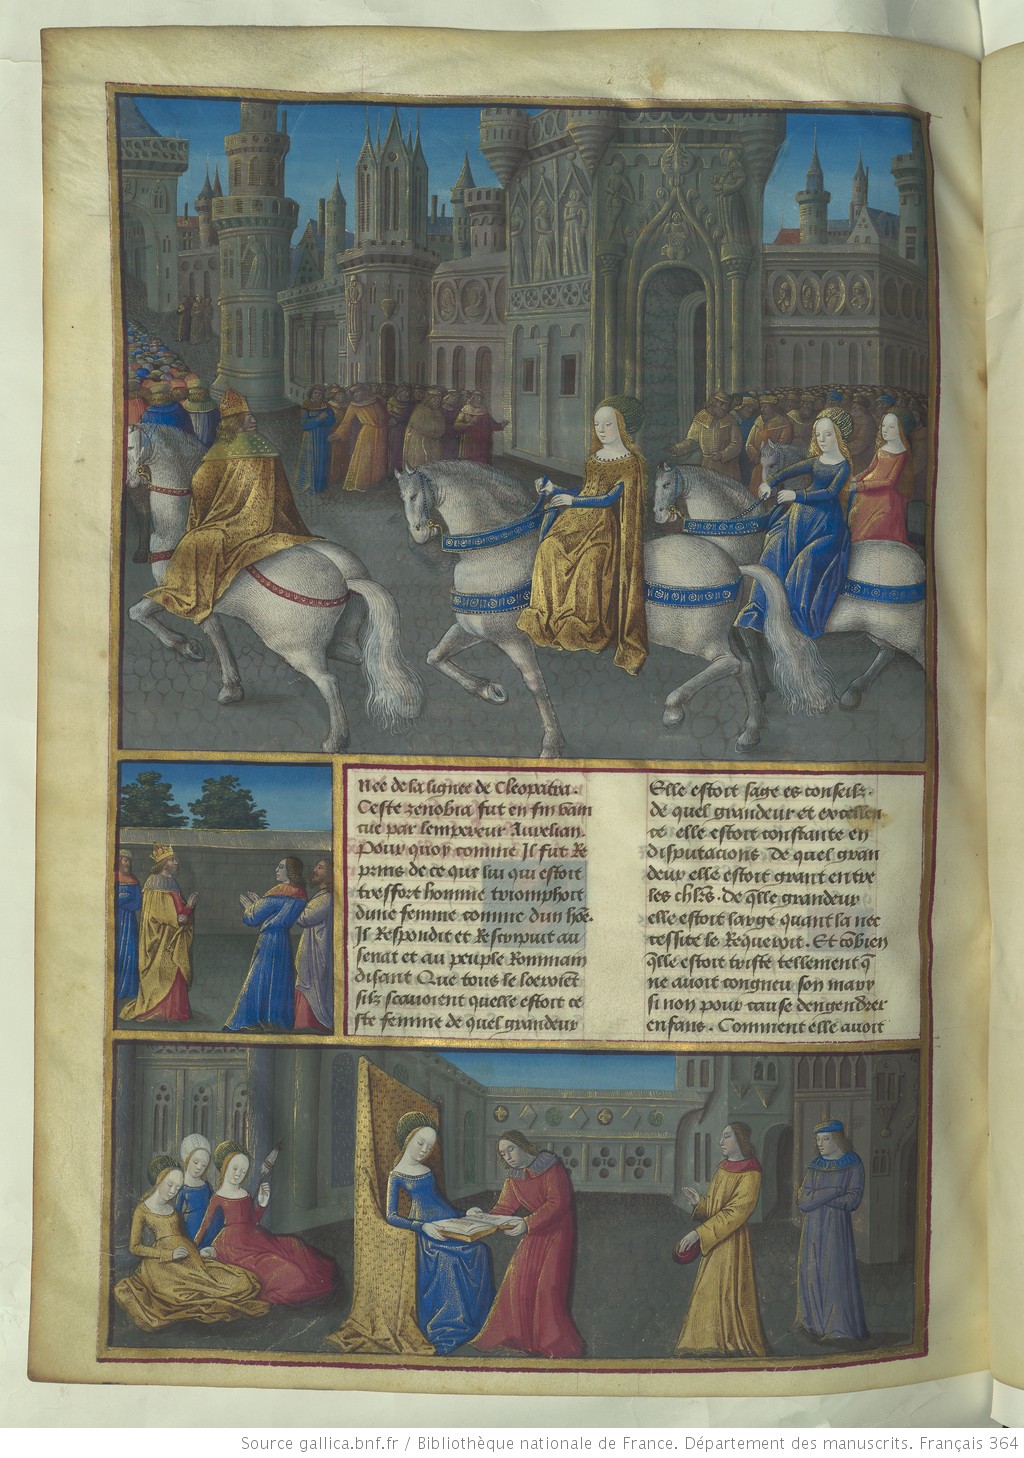 Nee de la lignee de Cleopatra.
Ceste zenobia fut en fin vain
cue par lempereur Aurelian.
Pour quoy comme Il fut Re
prins de ce que lui qui estoit
tresfort homme triomphoit
dune femme comme dun hōe.
Il Respondit et Rescripuit au
senat et au peuple Rommain
disant Que tous le loeroiēt
silz scauoient quelle estoit ce
ste femme de quel grandeur
Elle estoit sage es conseilz.
de quel grandeur et excellen
ce elle estoit constante en
disputacions De quel gran
deur elle estoit grant entre
les chl̄rs. de q̄lle grandeur
elle estoit large quant la nec
cessite le Requeroit. Et cōbien
q̄lle estoit triste tellement q̄
ne auoit congneu son mary
si non pour cause dengendrer
enfans. Comment elle auoit
Source gallica.bnf.fr / Bibliothèque nationale de France. Département des manuscrits. Français 364